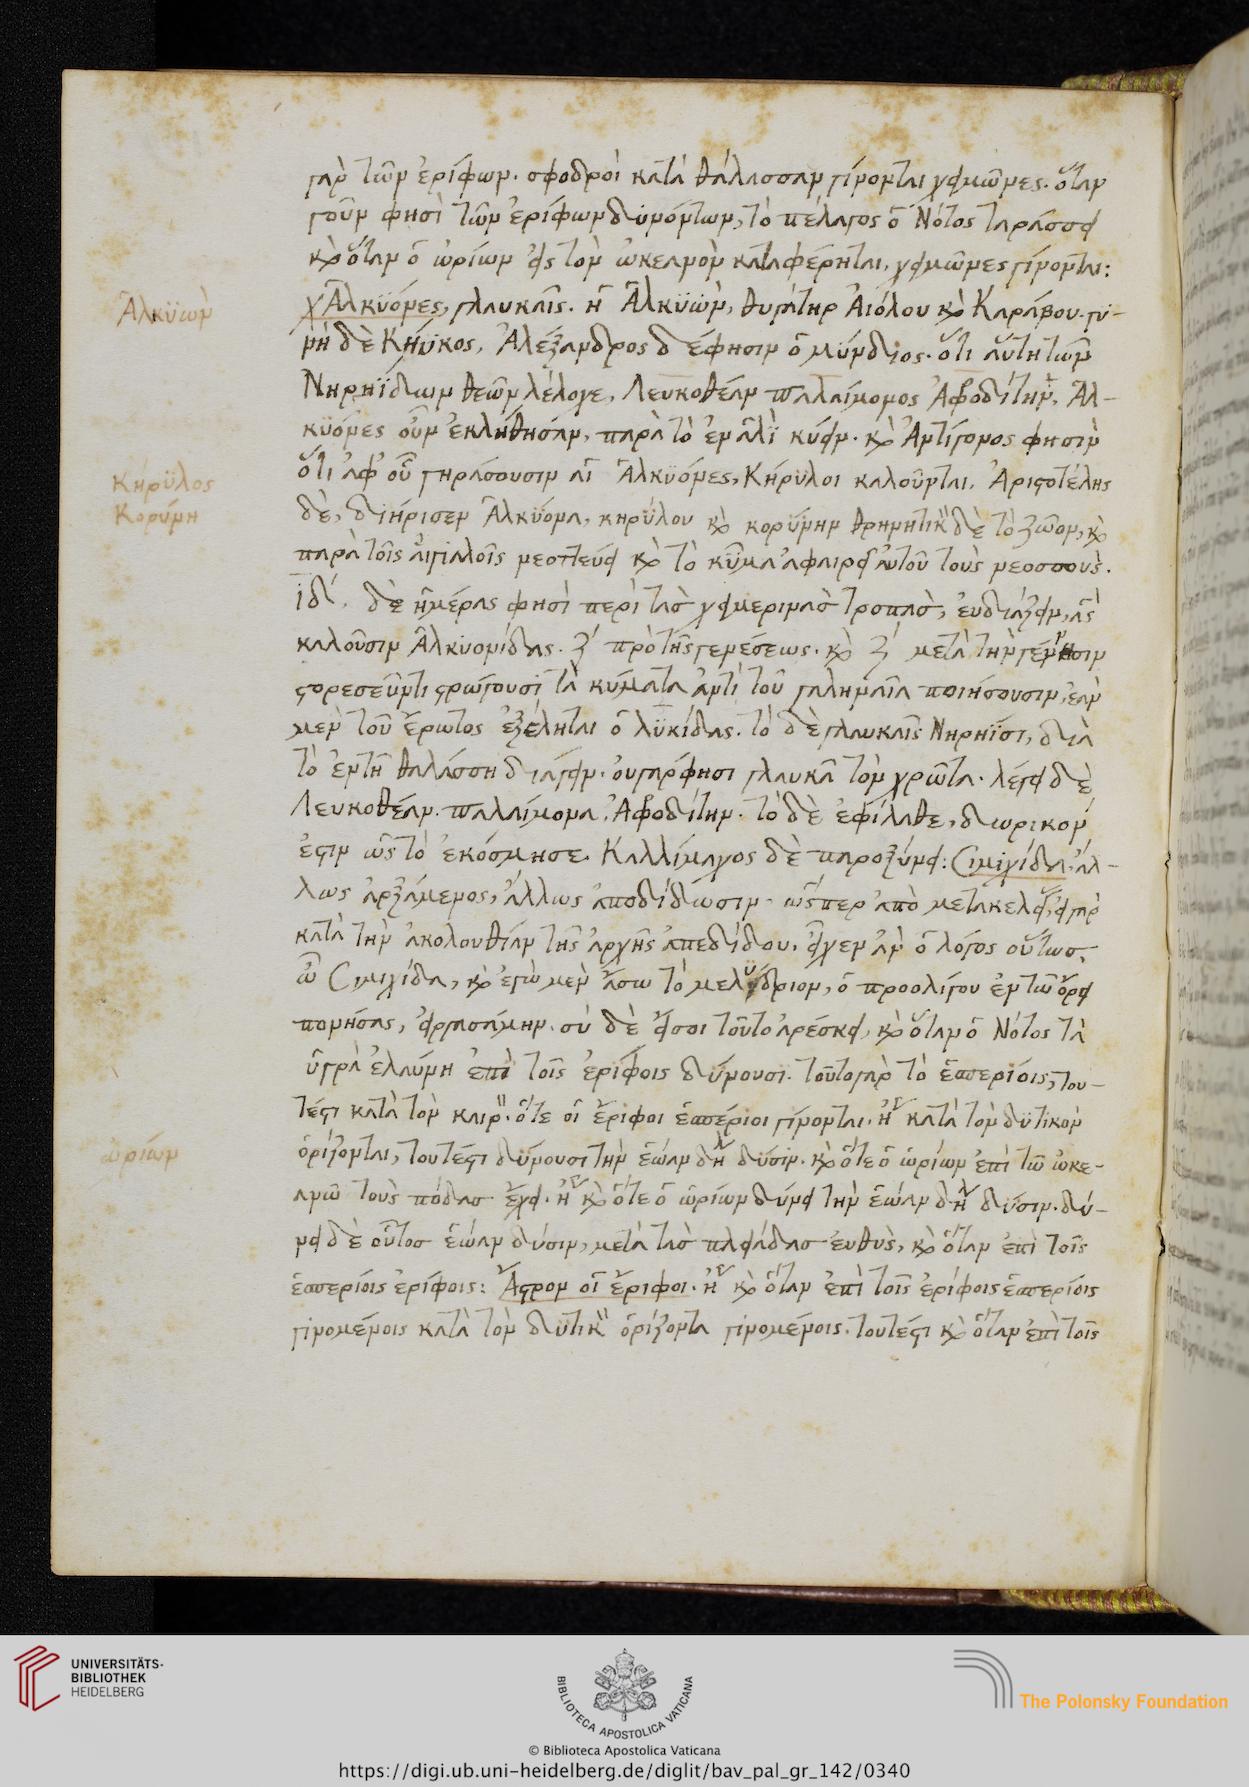 γὰρ τῶν ἐρίφων. σφοδροὶ κατὰ θάλασσαν γίνονται χειμῶνες. ὅταν
γοῦν φησὶ τῶν ἐρίφων δυνόντων, τὸ πέλαγος ὁ Νότος ταράσσει
καὶ ὅταν ὁ ὠρίων εἰς τὸν ὠκεανὸν καταφέρηται, χειμῶνες γίνονται:
χ' Ἀλκϋόνες, γλαυκαῖς. ἡ Ἀλκϋὼν, θυγάτηρ Αἰόλου καὶ Κανάβου. γυ-
Ἀλκϋὼν
νὴ δὲ Κήϋκος, Ἀλέξανδρος δ' έφησιν ὁ μύνδιος. ὅτι αὕτη τῶν
Νηρηΐδων θεῶν λέλογε, Λευκοθέαν παλαίμονος Ἀφροδίτην, Ἀλ-
κϋόνες οὖν ἐκλήθησαν, παρὰ τὸ ἐν ἁλὶ κύειν. καὶ Ἀντίγονος φησὶν
ὅτι ἀφ' οὗ γηράσουσιν αἱ Ἀλκϋόνες, Κήρϋλοι καλοῦνται. Ἀριστοτέλης
Κήρϋλος
Κορώνη
δὲ, διήρισεν Ἀλκϋόνα, κηρΰλου καὶ κορΰνην θρηνητικὸν δὲ τὸ ζῶον, καὶ
παρὰ τοῖς αἰγιαλοῖς νεοττεύει καὶ τὸ κῦμα ἀφαιρεῖ αὐτοῦ τοὺς νεοσσούς.
ιδ'. δὲ ἡμέρας φησὶ περὶ τὰς χειμερινὰς τροπὰς, ευδιάζειν, ἃς
καλοῦσιν Ἀλκυονίδας. ζ' πρὸ τῆς γενέσεως. καὶ ζ' μετὰ τὴν γέννησιν
στορεσεῦντι στρώσουσι τὰ κύματα ἀντὶ τοῦ γαληναῖα ποιήσουσιν, ἐὰν
μὲν τοῦ ἔρωτος ἐξέληται ὁ λϋκίδας. τὸ δὲ γλαυκαῖς Νηρηΐσι, διὰ
τὸ ἐν τῆ θαλάσση διάγειν. ου γάρ φησι γλαυκᾶ τὸν χρῶτα. λέγει δὲ
Λευκοθέαν. παλαίμονα, Ἀφροδίτην. τὸ δὲ ἐφίλαθε, δωρικόν
ἐστιν ὡς τὸ ἐκόσμησε. Καλλίμαχος δὲ παροξύνει: Σιμιχίδα, ἄλ-
λως ἀρξάμενος, ἄλλως ἀποδίδωσιν. ὥσπερ ἀπὸ μετακελεύσει, εἰ γὰρ
κατὰ τὴν ἀκολουθίαν τῆς ἀρχῆς ἀπεδίδου, εἶχεν ἂν ὁ λόγος οὕτως.
ὦ Σιμιχίδα, καὶ ἐγὼ μὲν ἄσω τὸ μελΰδριον, ὃ προολίγου ἐν τῶ ὄρει
πονήσας, εἰργασάμην. σὺ δὲ εἴ σοι τοῦτο ἀρέσκει, καὶ ὅταν ὁ Νότος τὰ
ὑγρὰ ἐλαύνη ἐπὶ τοῖς ἐρίφοις δύνουσι. τοῦτο γὰρ τὸ ἑσπερίοις, του-
τέστι κατὰ τὸν καιρὸν. ὅτε οἱ ἔριφοι ἑσπέριοι γίνονται. ἢ κατὰ τὸν δϋτικὸν
ὁρίζονται, τουτέστι δύνουσι τὴν ἑώαν δηλ δύσιν. καὶ ὅτε ὁ ὡρίων ἐπὶ τῶ ὠκε-
ὠρίων
ανῶ τοὺς πόδας ἔχει. ἢ καὶ ὅτε ὁ ὠρίων δύνει τὴν ἑώαν δηλ δύσιν. δύ-
νει δὲ οὗτος ἑώαν δύσιν, μετὰ τὰς πλειάδας εὐθὺς, καὶ ὅταν ἐπὶ τοῖς
ἑσπερίοις ἐρίφοις: Ἄστρον οἱ ἔριφοι. ἢ καὶ ὅταν ἐπὶ τοῖς ἐρίφοις ἑσπερίοις
γινομένοις κατὰ τὸν δϋτικὸν ὁρίζοντα γινομένοις. τουτέστι καὶ ὅταν ἐπὶ τοῖς
UNIVERSITÄTS-
BIBLIOTHEK
HEIDELBERG
BIBLIOTECA APOSTOLICA VATICANA
The Polonsky Foundation
© Biblioteca Apostolica Vaticana
https://digi.ub.uni-heidelberg.de/diglit/bav_pal_gr_142/0340